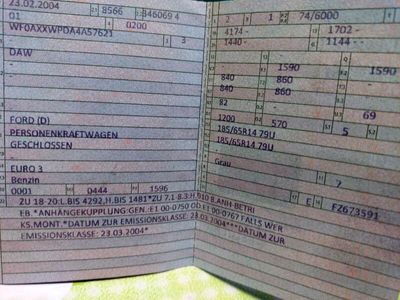 23.02.2004 8566
01 0200
3
DAW
FORD (D)
PERSONENKRAFTWAGEN
GESCHLOSSEN
EURO 3
Benzin
0001 0444 1596
ZU 18-20:L.BIS 4292,H.BIS 1481*ZU 7.1-8.3:H.910 B.ANH-BETRI
EB.*ANHÄNGEKUPPLUNG:GEN.:E1 00-0750 OD.E1 00-0767 FALLS WER
KS.MONT.*DATUM ZUR EMISSIONSKLASSE: 23.03.2004***DATUM ZUR
EMISSIONSKLASSE: 23.03.2004*
2 1 74/6000
4174 - 1702 -
1440 - 1144 --
1590 1590
840 860 -
840 860 -
82 -
69
1200 570 5
185/65R14 79U
185/65R14 79U
Grau
7
17 E FZ673591